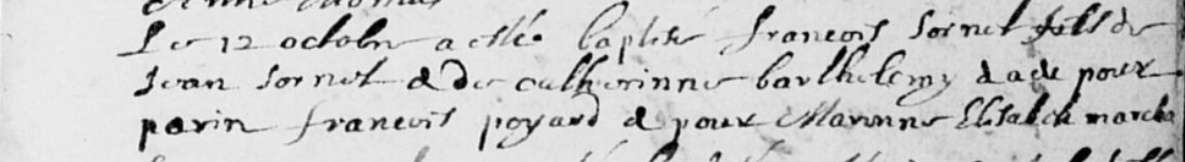 Thomas
Le 12 octobre a esté baptisé francois sornet fils de
Jean sornet & de catherinne barthelemy & a eu pour
parin francois poyard & pour Marinne Elisabeth marcha